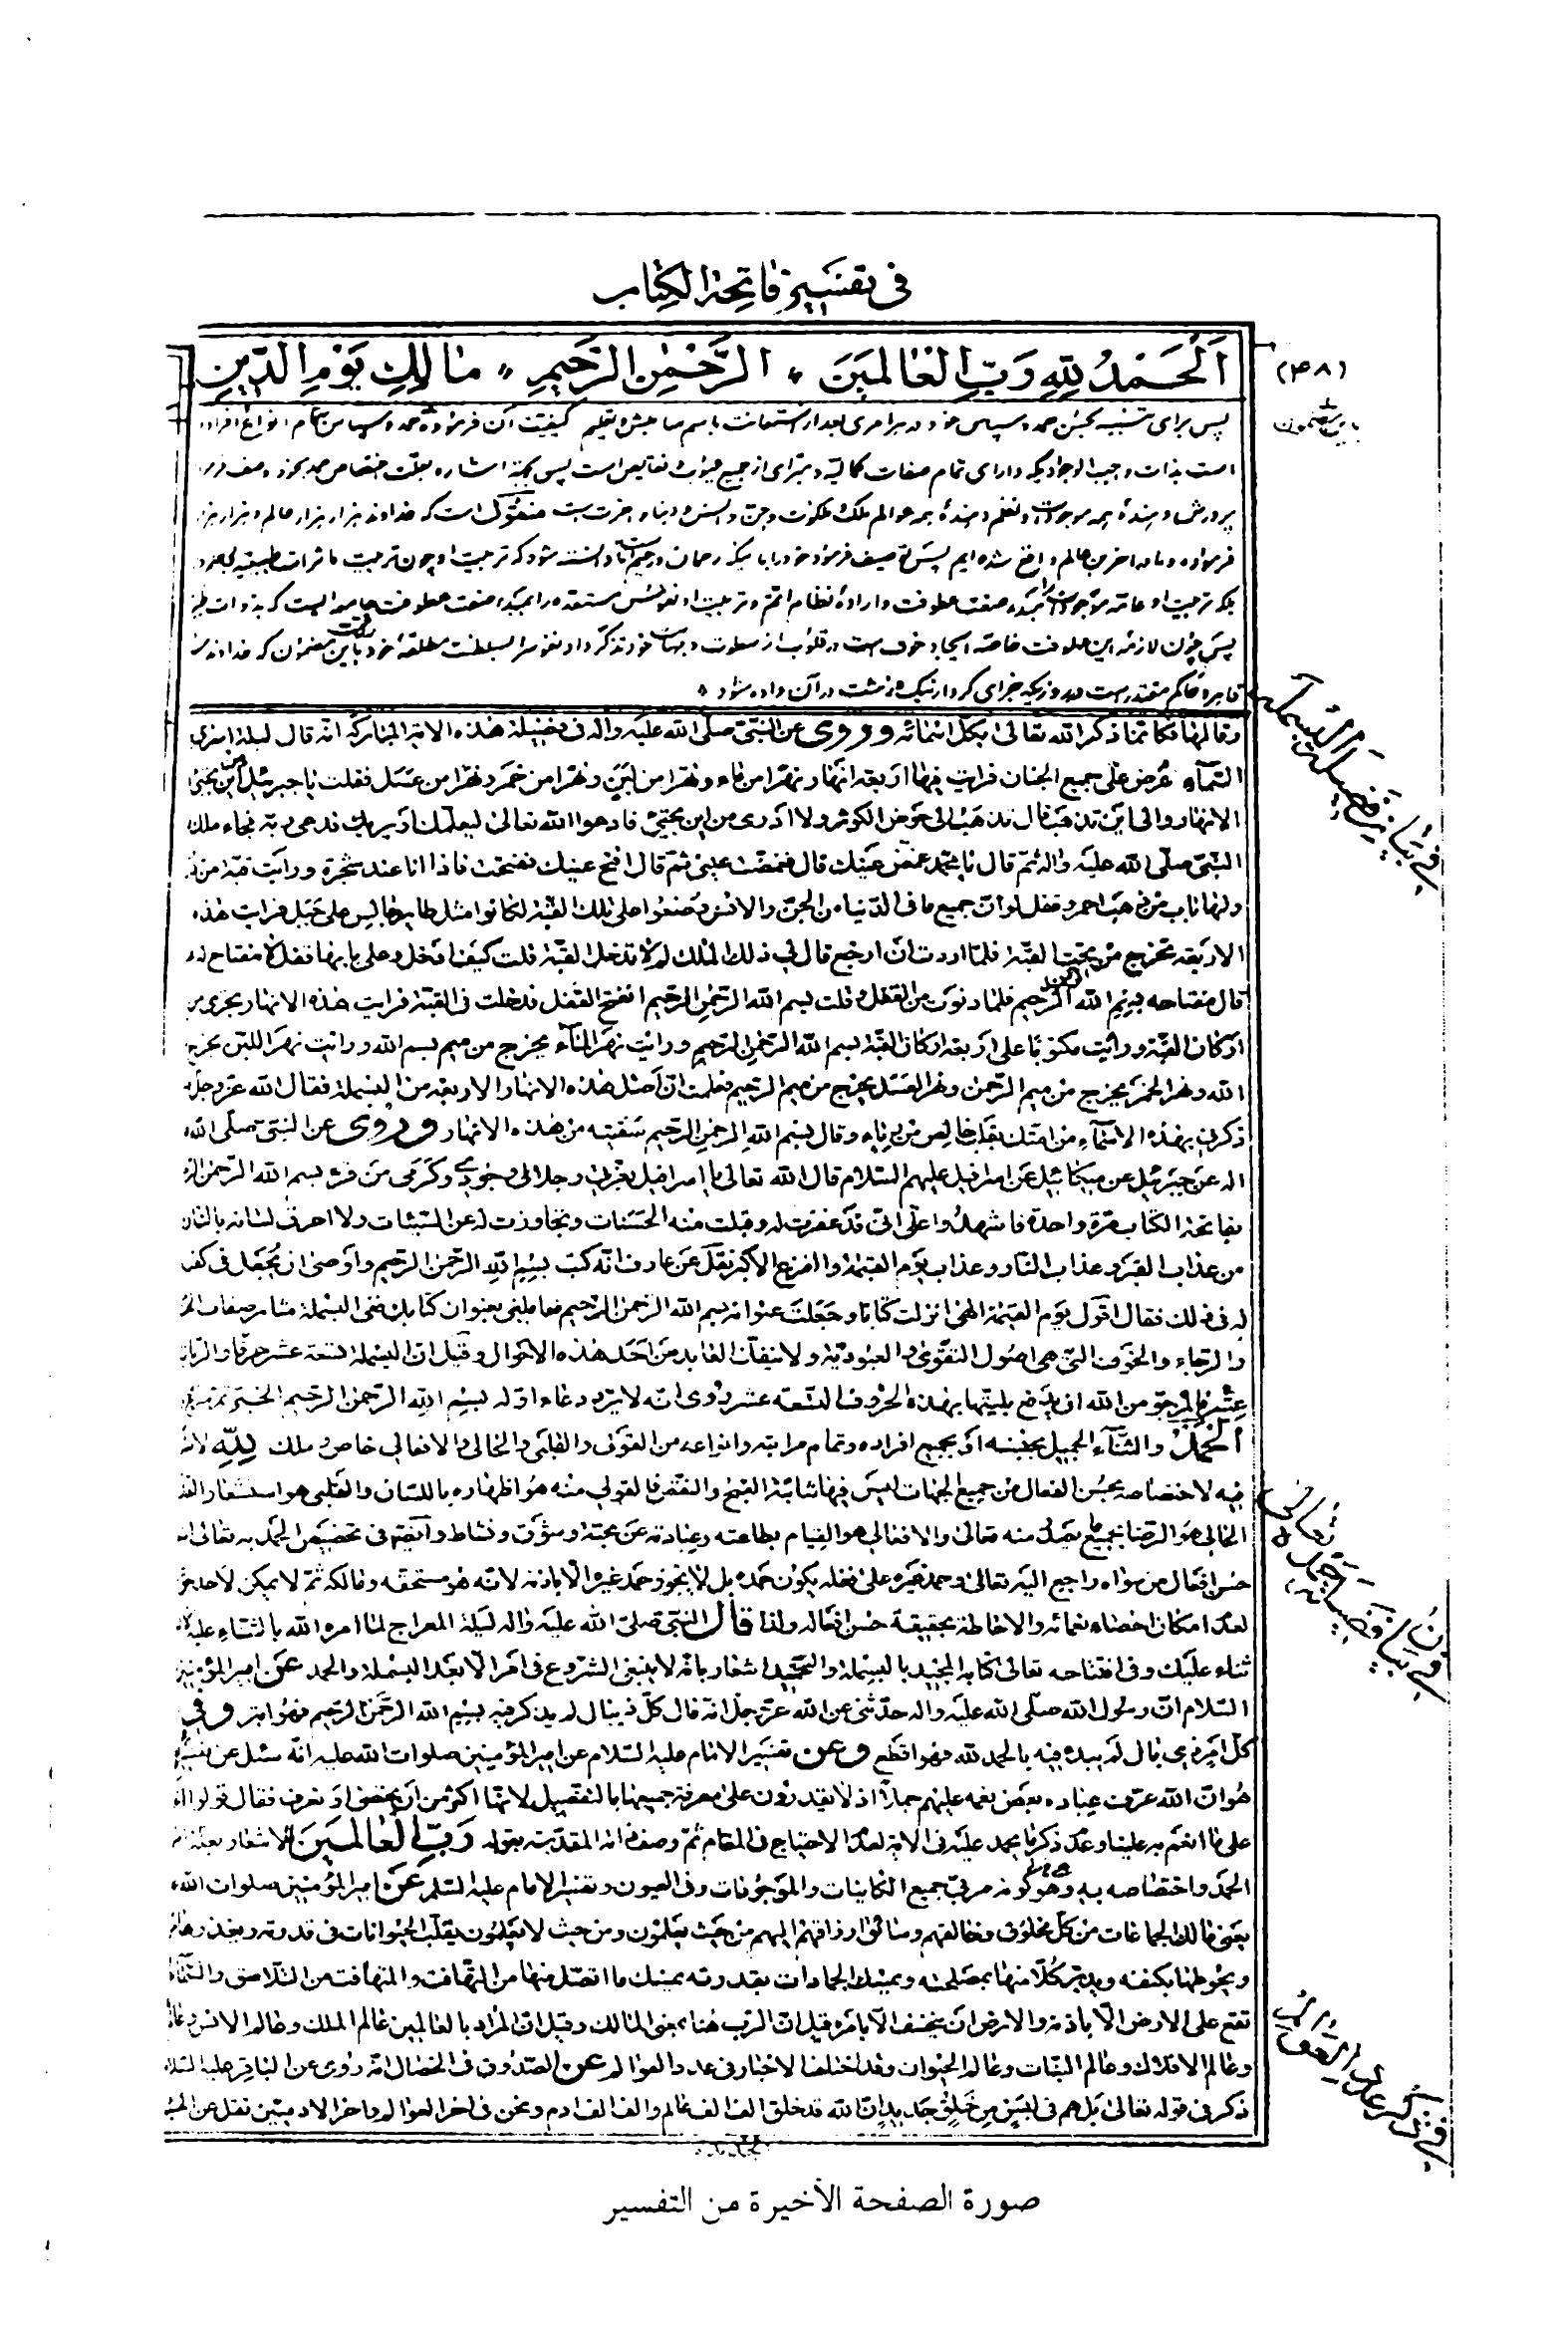 في تفسير فاتحة الكتاب
اَلْحَمْدُ لِلّهِ رَبِّ الْعالَمينَ * الرَّحْمنِ الرَّحيمِ * مالِكِ يَوْمِ الدّينِ
(٣٨)
پس برای تنبیه بحسن حمد و سپاس خود در هر امری بعد از استعانت باسم سامیش و تعلیم کیفیت آن فرموده حمد و سپاس تمام انواع افراد
است بذات واجب الوجودیکه دارای تمام صفات کمالیه و مبرای از جمیع عیوب و نقایص است پس
پرورش دهندهٔ همه موجودات و نظم دهندهٔ همه عوالم ملک و ملکوت و جن و انس و دنیا و اخرت است منقول است که خداوند هزار هزار عالم و هزار هزار
فرموده و ما در اخرین عالم واقع شده ایم پس توصیف فرمود خود را باینکه رحمان و رحیم است تا دانسته شود که تربیت او چون تربیت
بلکه تربیت او عامه موجودات
پس چون لازمه این
قاهر و حاکم مقتدر است در روزیکه جزای کردار نیک و زشت در آن داده شود
وقالها فكانما ذكر الله تعالى بكل اسمائه وروى عن النبي صلى الله عليه واله في فضيلة هذه الاية المباركة انه قال ليلة اسرى
السماء عرض على جميع الجنان فرايت فيها اربعة انهار نهرا من ماء ونهرا من لبن ونهرا من خمر ونهرا من عسل فقلت يا جبرئيل من اين يجئ
الانهار والى اين تذهب قال تذهب الى حوض الكوثر ولا ادرى من اين يجئ فادعوا الله تعالى ليعلمك او يريك فدعى ربه فجاء ملك
النبي صلى الله عليه واله ثم قال يا محمد غمض عينك قال فغمضت عيني ثم قال افتح عينيك ففتحت فاذا انا عند شجرة ورايت قبة من
ولها باب من ذهب احمر وقفل لو ان جميع ما في الدنيا من الجن والانس وضعوا على تلك القبة لكانوا مثل طاير جالس على جبل فرايت هذه
الاربعة تخرج من تحت القبة فلما اردت ان ارجع قال لي ذلك الملك لم لا تدخل القبة قلت كيف ادخل وعلى بابها قفل لا مفتاح له
قال مفتاحه بسم الله الرحمن الرحيم فلما دنوت من القفل وقلت بسم الله الرحمن الرحيم انفتح القفل فدخلت في القبة فرايت هذه الانهار يجرى من
اركان القبة ورايت مكتوبا على اربعة اركان القبة بسم الله الرحمن الرحيم ورايت نهر الماء يخرج من ميم بسم الله ورايت نهر اللبن يخرج
الله ونهر الخمر يخرج من ميم الرحمن ونهر العسل يخرج من ميم الرحيم فعلمت ان اصل هذه الانهار الاربعة من البسملة فقال الله عز وجل
ذكرني بهذه الاسماء من امتك بقلب خالص من رياء وقال بسم الله الرحمن الرحيم سقيته من هذه الانهار وروى عن النبي صلى الله
اله عن جبرئيل عن ميكائيل عن اسرافيل عليهم السلام قال الله تعالى يا اسرافيل بعزتي وجلالي وجودي وكرمي من قرء بسم الله الرحمن
بفاتحة الكتاب مرة واحدة فاشهدوا على اني قد غفرت له وقبلت منه الحسنات وتجاوزت له عن السيئات ولا احرق لسانه بالنار
من عذاب القبر وعذاب النار وعذاب يوم القيمة والفزع الاكبر نقل عن عارف انه كتب بسم الله الرحمن الرحيم واوصى ان يجعل في كفنه
له في ذلك فقال اقول يوم القيمة الهى انزلت كتابا وجعلت عنوانه بسم الله الرحمن الرحيم فعاملني بعنوان كتابك ففي البسملة
والرجاء والخوف التي هي اصول التقوى والعبودية ولا ينفك العابد من احد هذه الاحوال وقيل ان البسملة تسعة عشر حرفا والزبانية
عشر فالمرجو من الله ان يدفع بليتها بهذه الحروف التسعة عشر روى انه لا يرد دعاء اوله بسم الله الرحمن الرحيم
الحمد والثناء الجميل بجنسه او بجميع افراده وتمام مراتبه وانواعه من القولي والقلبي والحالي والافعالي خاص وملك لله لانه
فيه لاختصاصه بحسن الفعال من جميع الجهات ليس فيها شائبة القبح والنقص فالقولي منه هو اظهاره باللسان والقلبي هو استشعار
الحالي هو الرضا بجميع ما يصل منه تعالى والافعالي هو القيام بطاعته وعبادته عن محبة وشوق ونشاط
حسن افعال من سواه راجع اليه تعالى وحمد غيره على فعله يكون حمده بل لا يجوز حمد غيره الا باذنه لانه هو مستحقه ومالكه ثم لا يمكن لاحد
لعدم امكان احصاء نعمائه والاحاطة بحقيقة حسن افعاله ولذا قال النبي صلى الله عليه واله ليلة المعراج لما امره الله بالثناء عليه
ثناء عليك وفي افتتاحه تعالى كتابه المجيد بالبسملة والتحميد اشعار بانه لا ينبغي الشروع في امر الا بعد البسملة والحمد عن امير المؤمنين
السلام ان رسول الله صلى الله عليه واله حدثني عن الله عز وجل انه قال كل ذي بال لم يذكر فيه بسم الله الرحمن الرحيم فهو ابتر وفي
كل امر ذي بال لم يبدء فيه بالحمد لله فهو اقطع وعن تفسير الامام عليه السلام عن امير المؤمنين صلوات الله عليه انه سئل عن تفسير
هو ان الله عرف عباده بعض نعمه عليهم جملا اذ لا يقدرون على معرفة جميعها بالتفصيل لانها اكثر من ان يحصى او تعرف فقال قولوا
على ما انعم به علينا وعدم ذكر ما يحمد عليه في الاية لعدم الاحتياج في المقام ثم وصف ذاته المقدسة بقوله رب العالمين لاشعار
الحمد واختصاصه به وهو كونه مربي جميع الكاينات والموجودات وفي العيون وتفسير الامام عليه السلم عن امير المؤمنين صلوات الله
يعني مالك الجماعات من كل مخلوق وخالقهم وسائق ارزاقهم اليهم من حيث يعلمون ومن حيث لا يعلمون يقلب الحيوانات في قدرته ويغذوها
ويحوطها بكنفه ويدبر كلا منها بمصلحته ويمسك الجمادات بقدرته يمسك ما اتصل منها من التهافت والمتهافت من التلاصق والسماء
تقع على الارض الا باذنه والارض ان ينخسف الا بامره قيل ان الرب هنا بمعنى المالك وقيل ان المراد بالعالمين عالم الملك وعالم الانس
وعالم الافلاك وعالم النبات وعالم الحيوان وقد اختلف الاخبار في عدد العوالم عن الصدوق في الخصال انه روى عن الباقر عليه السلام
ذكر في قوله تعالى بل هم في لبس من خلق جديد ان الله قد خلق الف الف عالم والف الف ادم ونحن في اخر العوالم واخر الادميين نقل عن
في بيان فضيلة البسملة
في بيان فضيلة حمده تعالى
في ذكر عدد العوالم
صورة الصفحة الأخيرة من التفسير